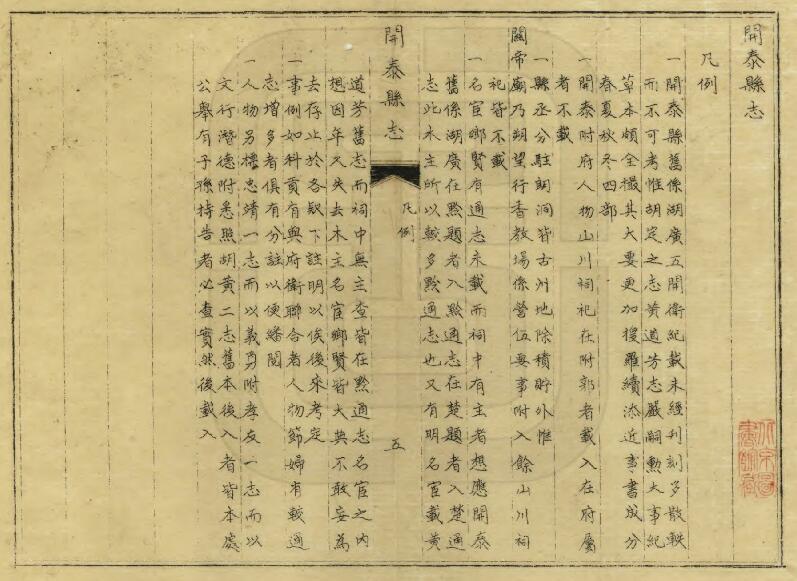 開泰縣志
凡例
一開泰縣舊係湖廣五開衛紀載未經刊刻多散軼
而不可考惟胡定之志黃道芳志嚴嗣勲大事紀
草本頗全撮其大要更加搜羅續添近事書成分
春夏秋冬四部
一開泰附府人物山川祠祀在附郭者載入在府屬
者不載
一縣丞分駐朗洞皆古州地除積貯外惟
關帝廟乃朔望行香教場係營伍要事附入餘山川祠
祀皆不載
一名宦鄉賢有通志未載而祠中有主者想應開泰
舊係湖廣在黔題者入黔通志在楚題者入楚通
志此木主所以較多黔通志也又有明名宦載黃
開泰縣志
凡例
五
道芳舊志而祠中無主查皆在黔通志名宦之内
想因年久失去木主名宦鄉賢皆大典不敢妄為
去存止於各款下註明以俟後來考定
一事例如科貢有與府衛聯合者人物節婦有較通
志增多者俱有分註以便繙閱
一人物另標忠靖一志而以義勇附孝友一志而以
文行潛德附悉照胡黃二志舊本後入者皆本處
公舉有子孫持告者必查實然後載入